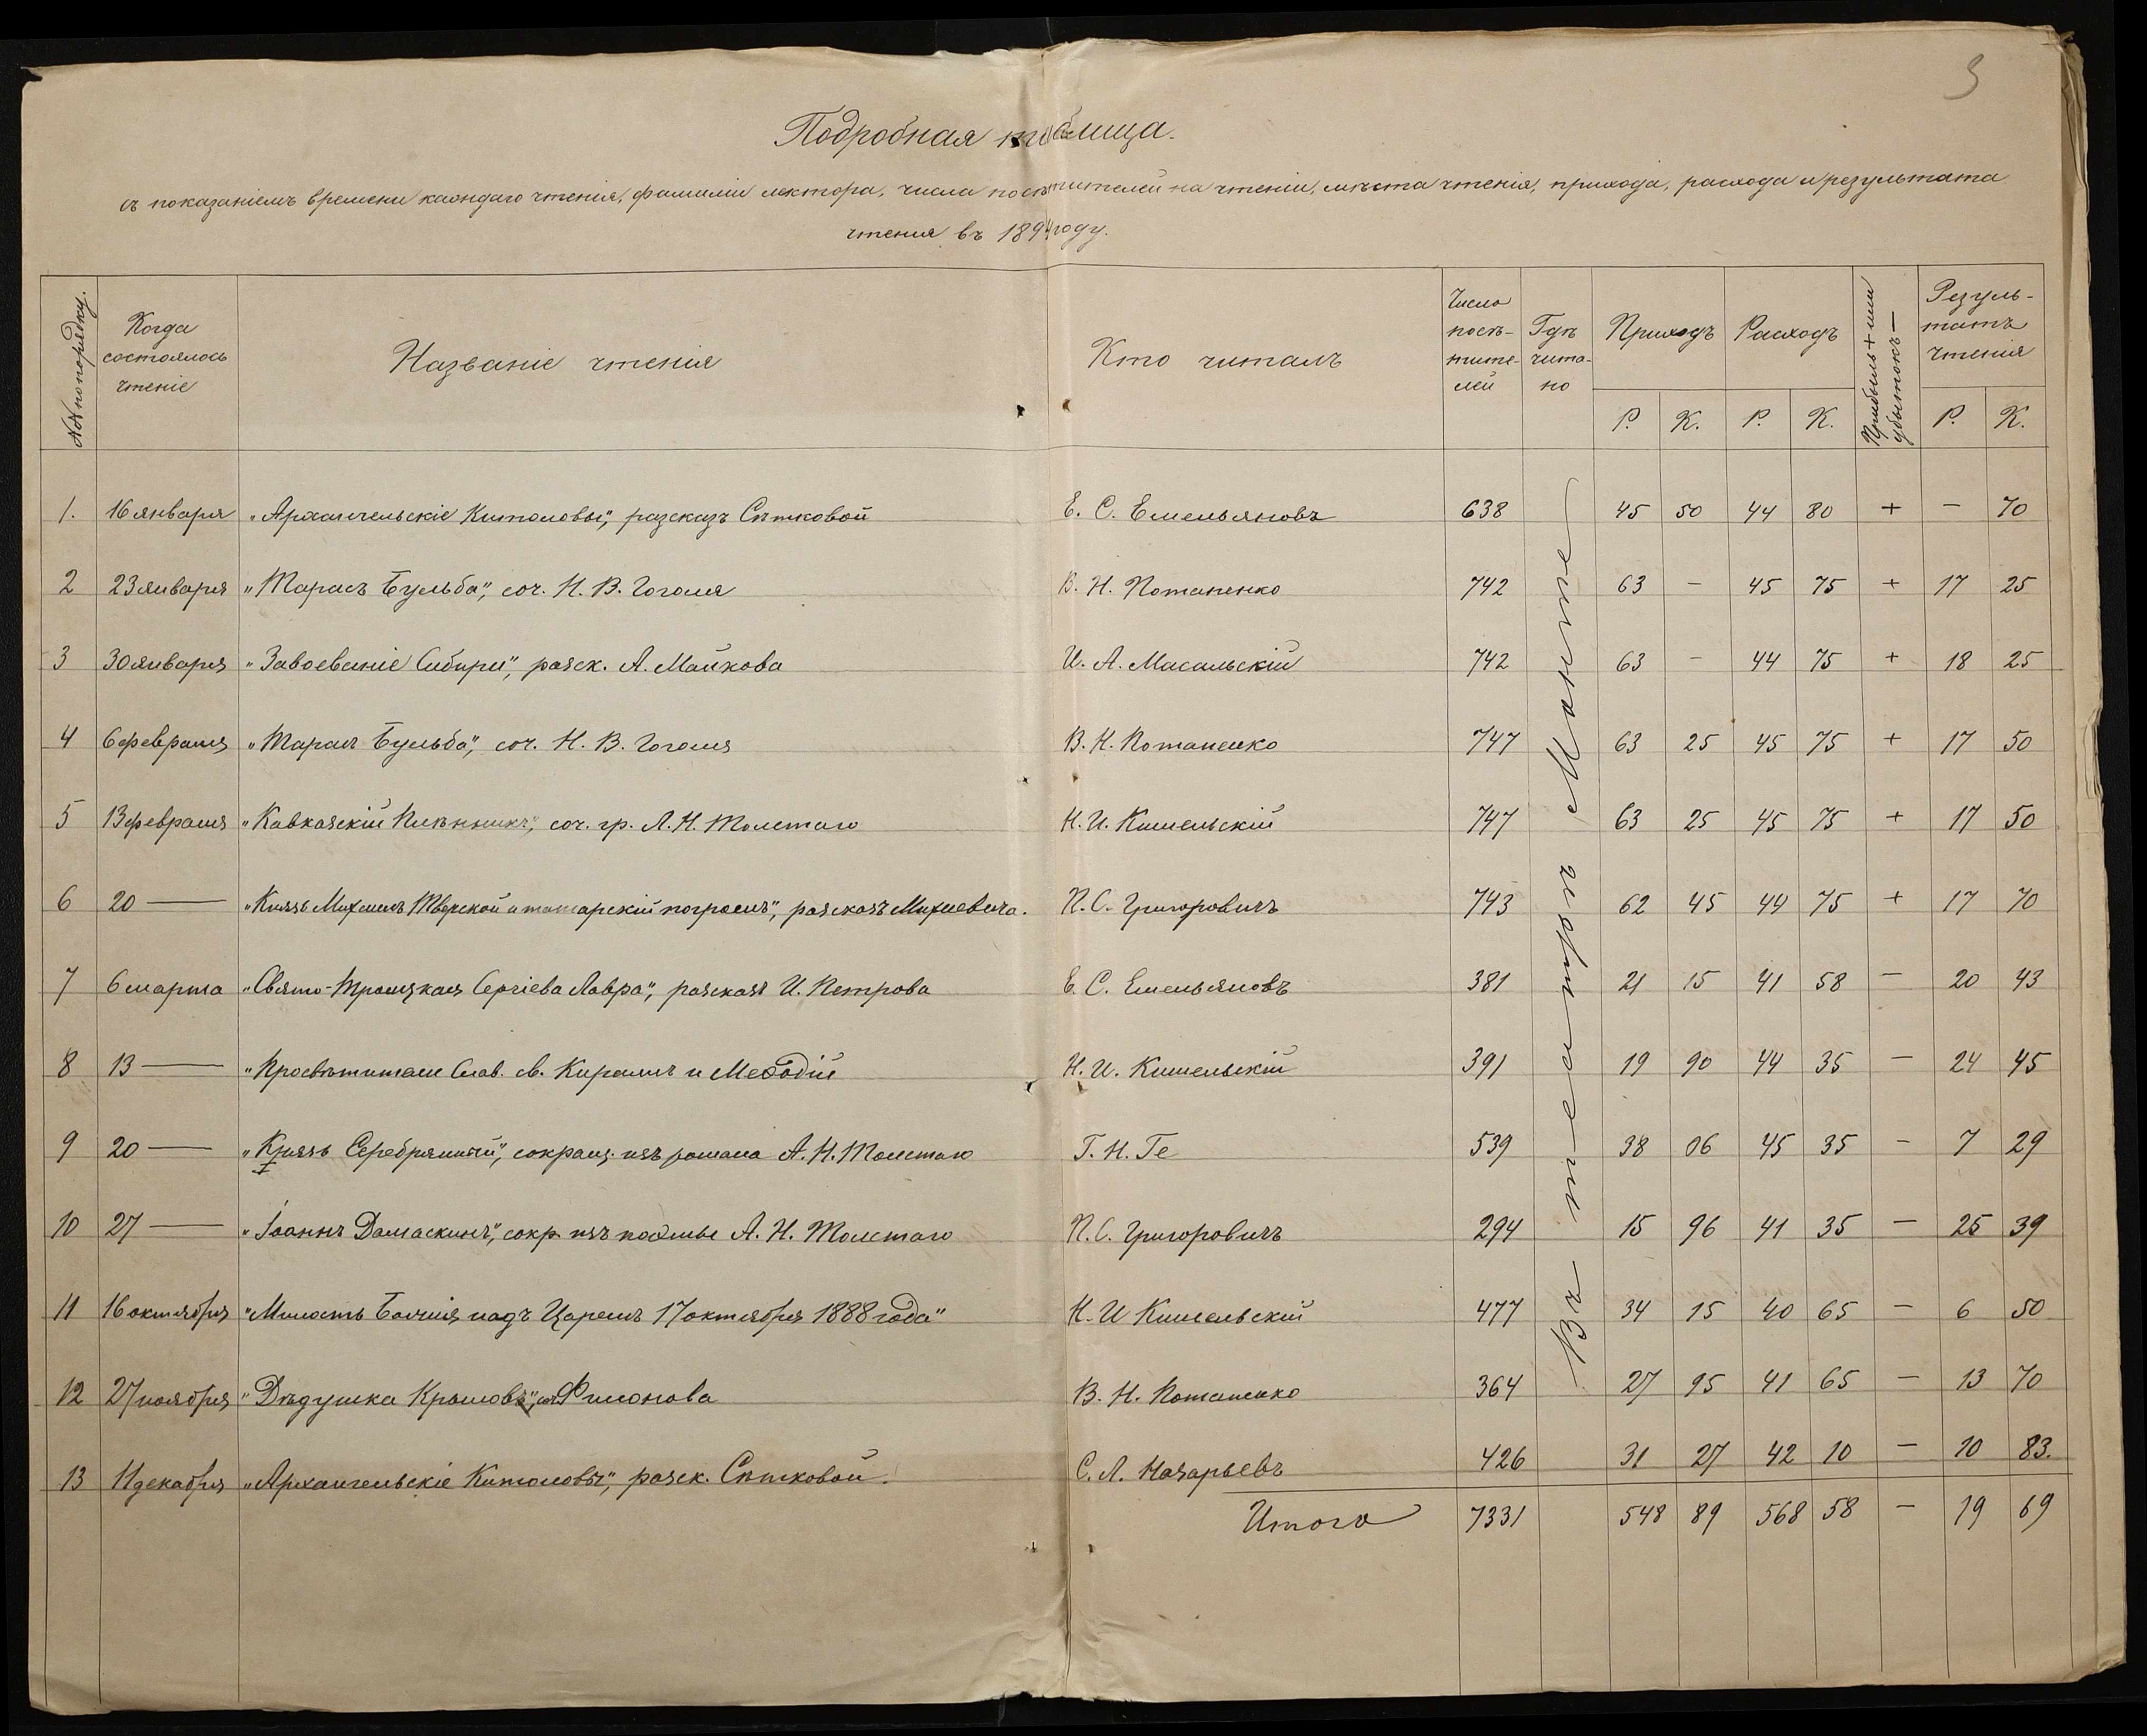 3
Подробная таблица
съ показаніемъ времени каждаго чтенія, фамиліи лектора, числа посѣтителей на чтеніи, мѣста чтенія, прихода, расхода и результата
чтенія въ 1894 году.
№№ по порядку. Когда состоялось чтеніе Названіе чтенія Кто читалъ Число посѣ-тите-лей Гдѣ чита-но Приходъ Расходъ Прибыль + или убытокъ — Резуль-татъ чтенія
Р. К. Р. К. Р. К.
1. 16 января „Архангельскіе Китоловы", разсказъ Сѣтковой Е. С. Емельяновъ 638 45 50 44 80 + — 70
2 23 января „Тарасъ Бульба", соч. Н. В. Гоголя В. Н. Потапенко 742 63 — 45 75 + 17 25
3 30 января „Завоеваніе Сибири", разск. А. Майкова И. А. Масальскій 742 63 — 44 75 + 18 25
4 6 февраля „Тарасъ Бульба", соч. Н. В. Гоголя В. Н. Потапенко 747 63 25 45 75 + 17 50
5 13 февраля „Кавказскій Плѣнникъ", соч. гр. Л. Н. Толстаго Н. И. Кишельскій 747 63 25 45 75 + 17 50
6 20 — „Князь Михаилъ Тверской и татарскій погромъ", разсказъ Михневича. П. С. Григоровичъ 743 62 45 44 75 + 17 70
7 6 марта „Свято-Троицкая Сергіева Лавра", разсказъ И. Петрова Е. С. Емельяновъ 381 21 15 41 58 — 20 43
8 13 — „Просвѣтители Слав. св. Кириллъ и Меѳодій Н. И. Кишельскій 391 19 90 44 35 — 24 45
9 20 — „Князь Серебряный", сокращ. изъ романа А. Н. Толстаго Г. Н. Ге 539 38 06 45 35 — 7 29
10 27 — „Іоаннъ Дамаскинъ", сокр изъ поэмы А. Н. Толстаго П. С. Григоровичъ 294 15 96 41 35 — 25 39
11 16 октября „Милость Божія надъ Царемъ 17 октября 1888 года" Н. И Кишельскій 477 34 15 40 65 — 6 50
12 27 ноября „Дѣдушка Крыловъ", Филонова В. Н. Потапенко 364 27 95 41 65 — 13 70
13 11 декабря „Архангельскіе Китоловы", разск. Сѣтковой. С. Л. Назарьевъ 426 31 27 42 10 — 10 83.
Итого 7331 548 89 568 58 — 19 69
Въ театрѣ Монте